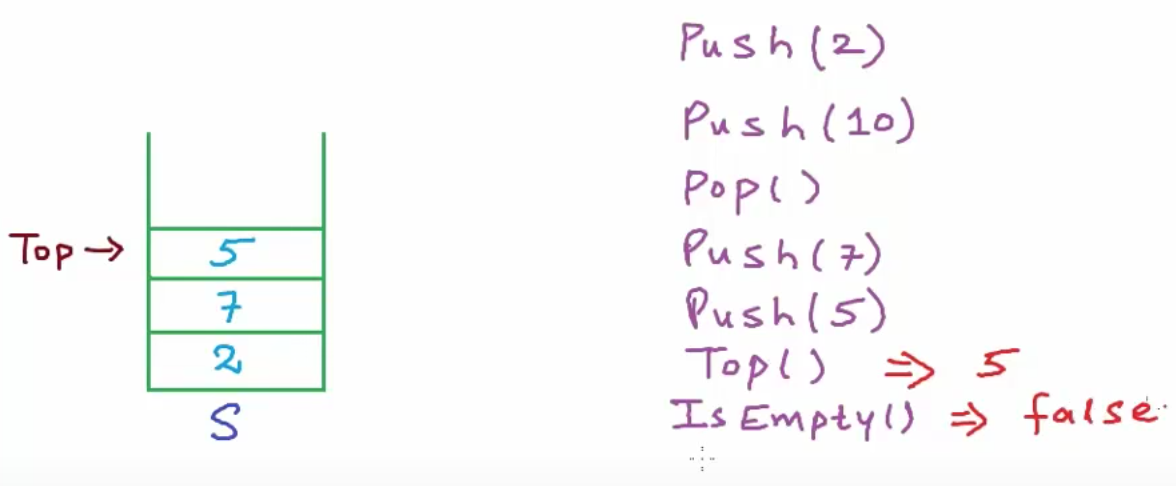 Top →
5
7
2
S
Push(2)
Push(10)
Pop()
Push(7)
Push(5)
Top() ⇒ 5
IsEmpty() ⇒ false